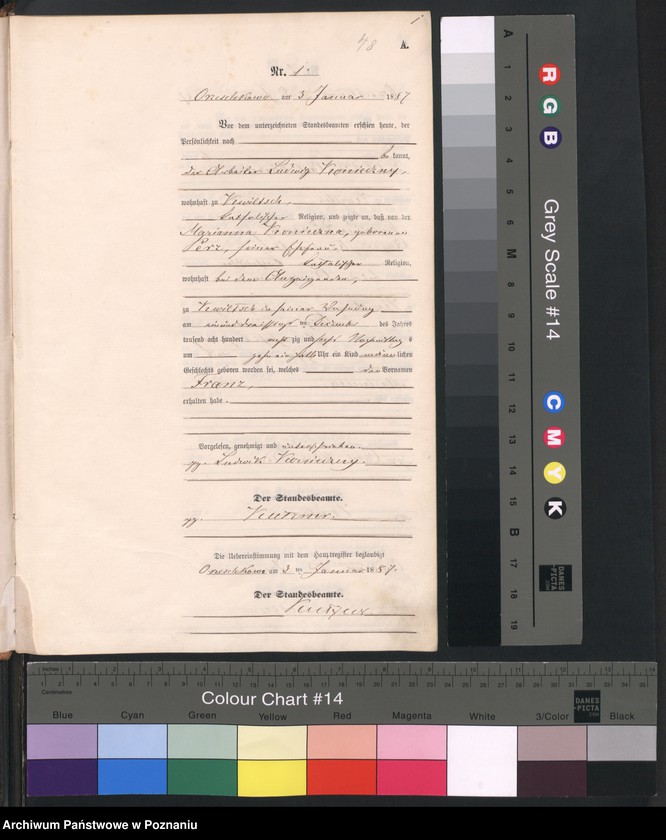 48
A.
Nr. 1
Oneschkowo am 3 Januar 1887
Vor dem unterzeichneten Standesbeamten erschien heute, der
Persönlichkeit nach
be kannt,
der Arbeiter Ludwig
wohnhaft zu
katholischer Religion, und zeigte an, daß von der
Marianna geborenen
seiner Ehefrau
katholischer Religion,
wohnhaft bei dem Anzeigenden,
zu in seiner Wohnung
am einunddreißigsten Dezember des Jahres
tausend acht hundert acht zig und sechs Nachmittags
um zehn ein halb Uhr ein Kind männlichen
Geschlechts geboren worden sei, welches den Vornamen
Franz,
erhalten habe.
Vorgelesen, genehmigt und unterschrieben.
gez. Ludwik
Der Standesbeamte.
gez.
Die Uebereinstimmung mit dem Hauptregister beglaubigt
am 3 ten Januar 1887.
Der Standesbeamte.
A
1
2
3
4
5
6
M
8
9
10
11
12
13
14
15
B
17
18
19
R
G
B
Grey Scale #14
C
M
Y
K
DANES
-PICTA
.COM
Inches
Centimetres
Colour Chart #14
DANES
-PICTA
.COM
Blue Cyan Green Yellow Red Magenta White 3/Color Black
Archiwum Państwowe w Poznaniu